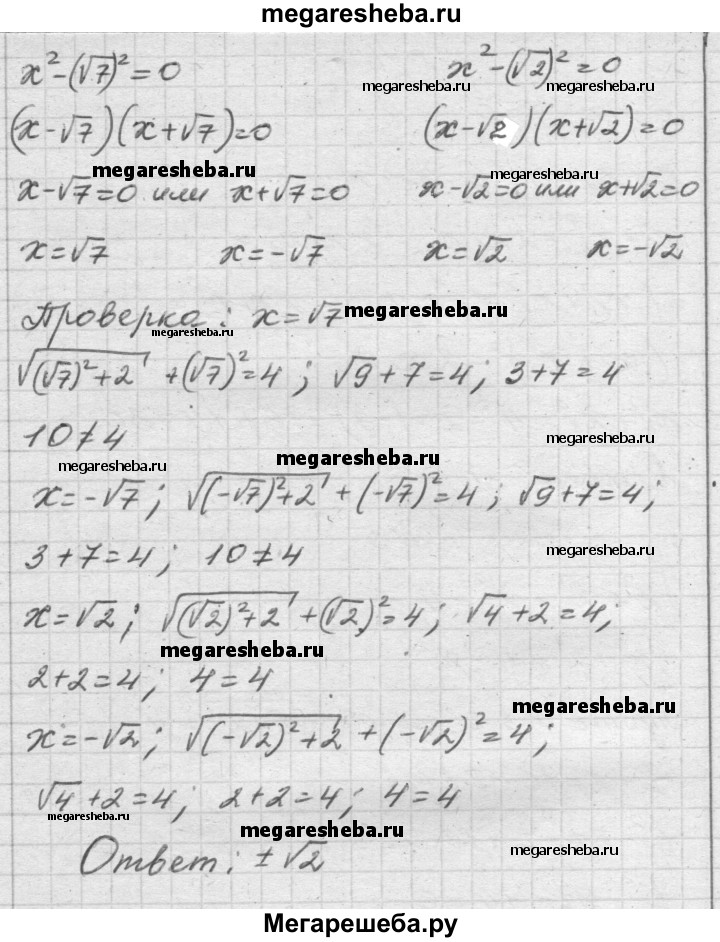 megaresheba.ru
x²-(√7)²=0 x²-(√2)²=0
megaresheba.ru megaresheba.ru
(x-√7)(x+√7)=0 (x-√2)(x+√2)=0
megaresheba.ru
x-√7=0 или x+√7=0 x-√2=0 или x+√2=0
megaresheba.ru
x=√7 x=-√7 x=√2 x=-√2
Проверка: x=√7
megaresheba.ru megaresheba.ru
√((√7)²+2) +(√7)²=4; √9+7=4; 3+7=4
10≠4
megaresheba.ru megaresheba.ru megaresheba.ru
x=-√7; √((-√7)²+2) +(-√7)²=4; √9+7=4;
3+7=4; 10≠4
megaresheba.ru
x=√2; √((√2)²+2) +(√2)²=4; √4+2=4;
megaresheba.ru
2+2=4; 4=4
megaresheba.ru
x=-√2; √((-√2)²+2) +(-√2)²=4;
√4+2=4; 2+2=4; 4=4
megaresheba.ru megaresheba.ru
Ответ: ±√2
megaresheba.ru
Мегарешеба.ру